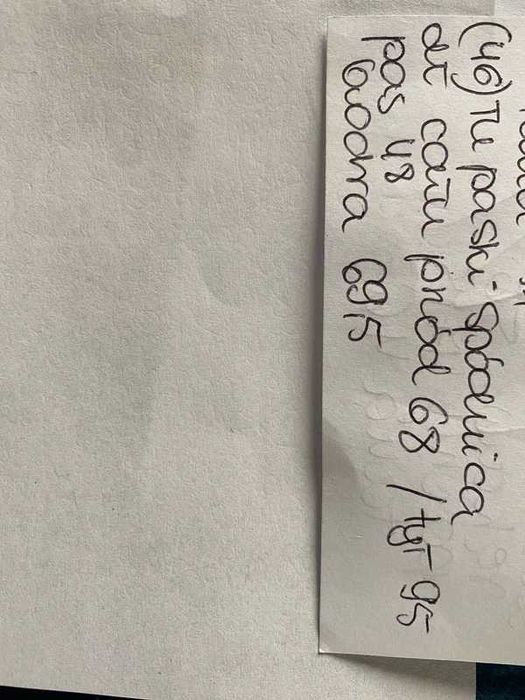 (46) Tu paski spódnica
dł całk przód 68 / tył 95
pas 48
biodra 69,5